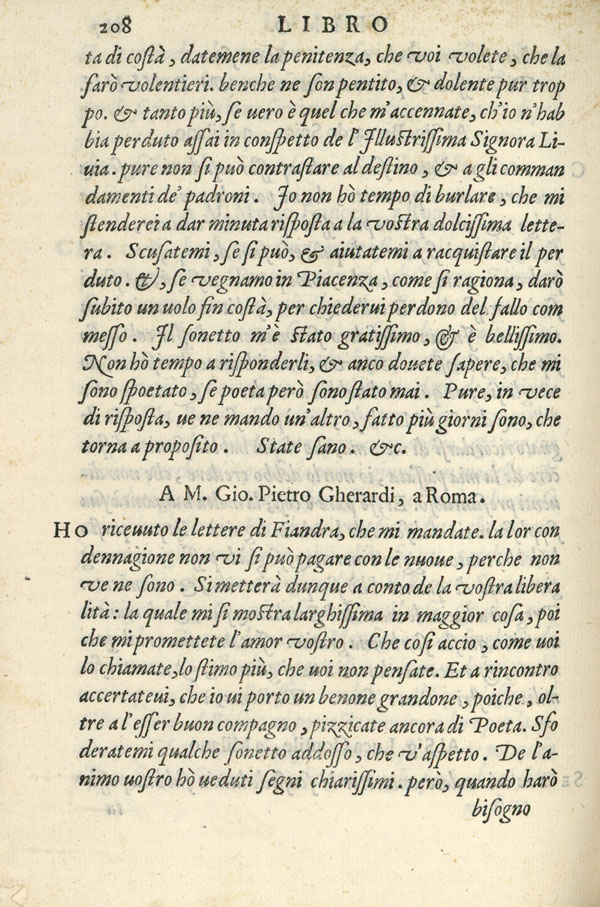 208 LIBRO
ta di costà, datemene la penitenza, che voi volete, che la
farò volentieri. benche ne son pentito, & dolente pur trop
po. & tanto più, se uero è quel che m'accennate, ch'io n'hab
bia perduto assai in conspetto de l'Illustrissima Signora Li-
uia. pure non si può contrastare al destino, & a gli comman
damenti de' padroni. Io non hò tempo di burlare, che mi
stenderei a dar minuta risposta a la vostra dolcissima lette-
ra. Scusatemi, se si può, & aiutatemi a racquistare il per
duto. &, se vegnamo in Piacenza, come si ragiona, darò
subito un uolo fin costà, per chiederui perdono del fallo com
messo. Il sonetto m'è stato gratissimo, & è bellissimo.
Non hò tempo a risponderli, & anco douete sapere, che mi
sono spoetato, se poeta però sono stato mai. Pure, in vece
di risposta, ue ne mando un'altro, fatto più giorni sono, che
torna a proposito. State sano. &c.
A M. Gio. Pietro Gherardi, a Roma.
HO riceuuto le lettere di Fiandra, che mi mandate. la lor con
dennagione non vi si può pagare con le nuoue, perche non
ve ne sono. Si metterà dunque a conto de la vostra libera
lità: la quale mi si mostra larghissima in maggior cosa, poi
che mi promettete l'amor vostro. Che cosi accio, come uoi
lo chiamate, lo stimo più, che uoi non pensate. Et a rincontro
accertateui, che io ui porto un benone grandone, poiche, ol-
tre a l'esser buon compagno, pizzicate ancora di Poeta. Sfo
deratemi qualche sonetto addosso, che v'aspetto. De l'a-
nimo uostro hò ueduti segni chiarissimi. però, quando harò
bisogno